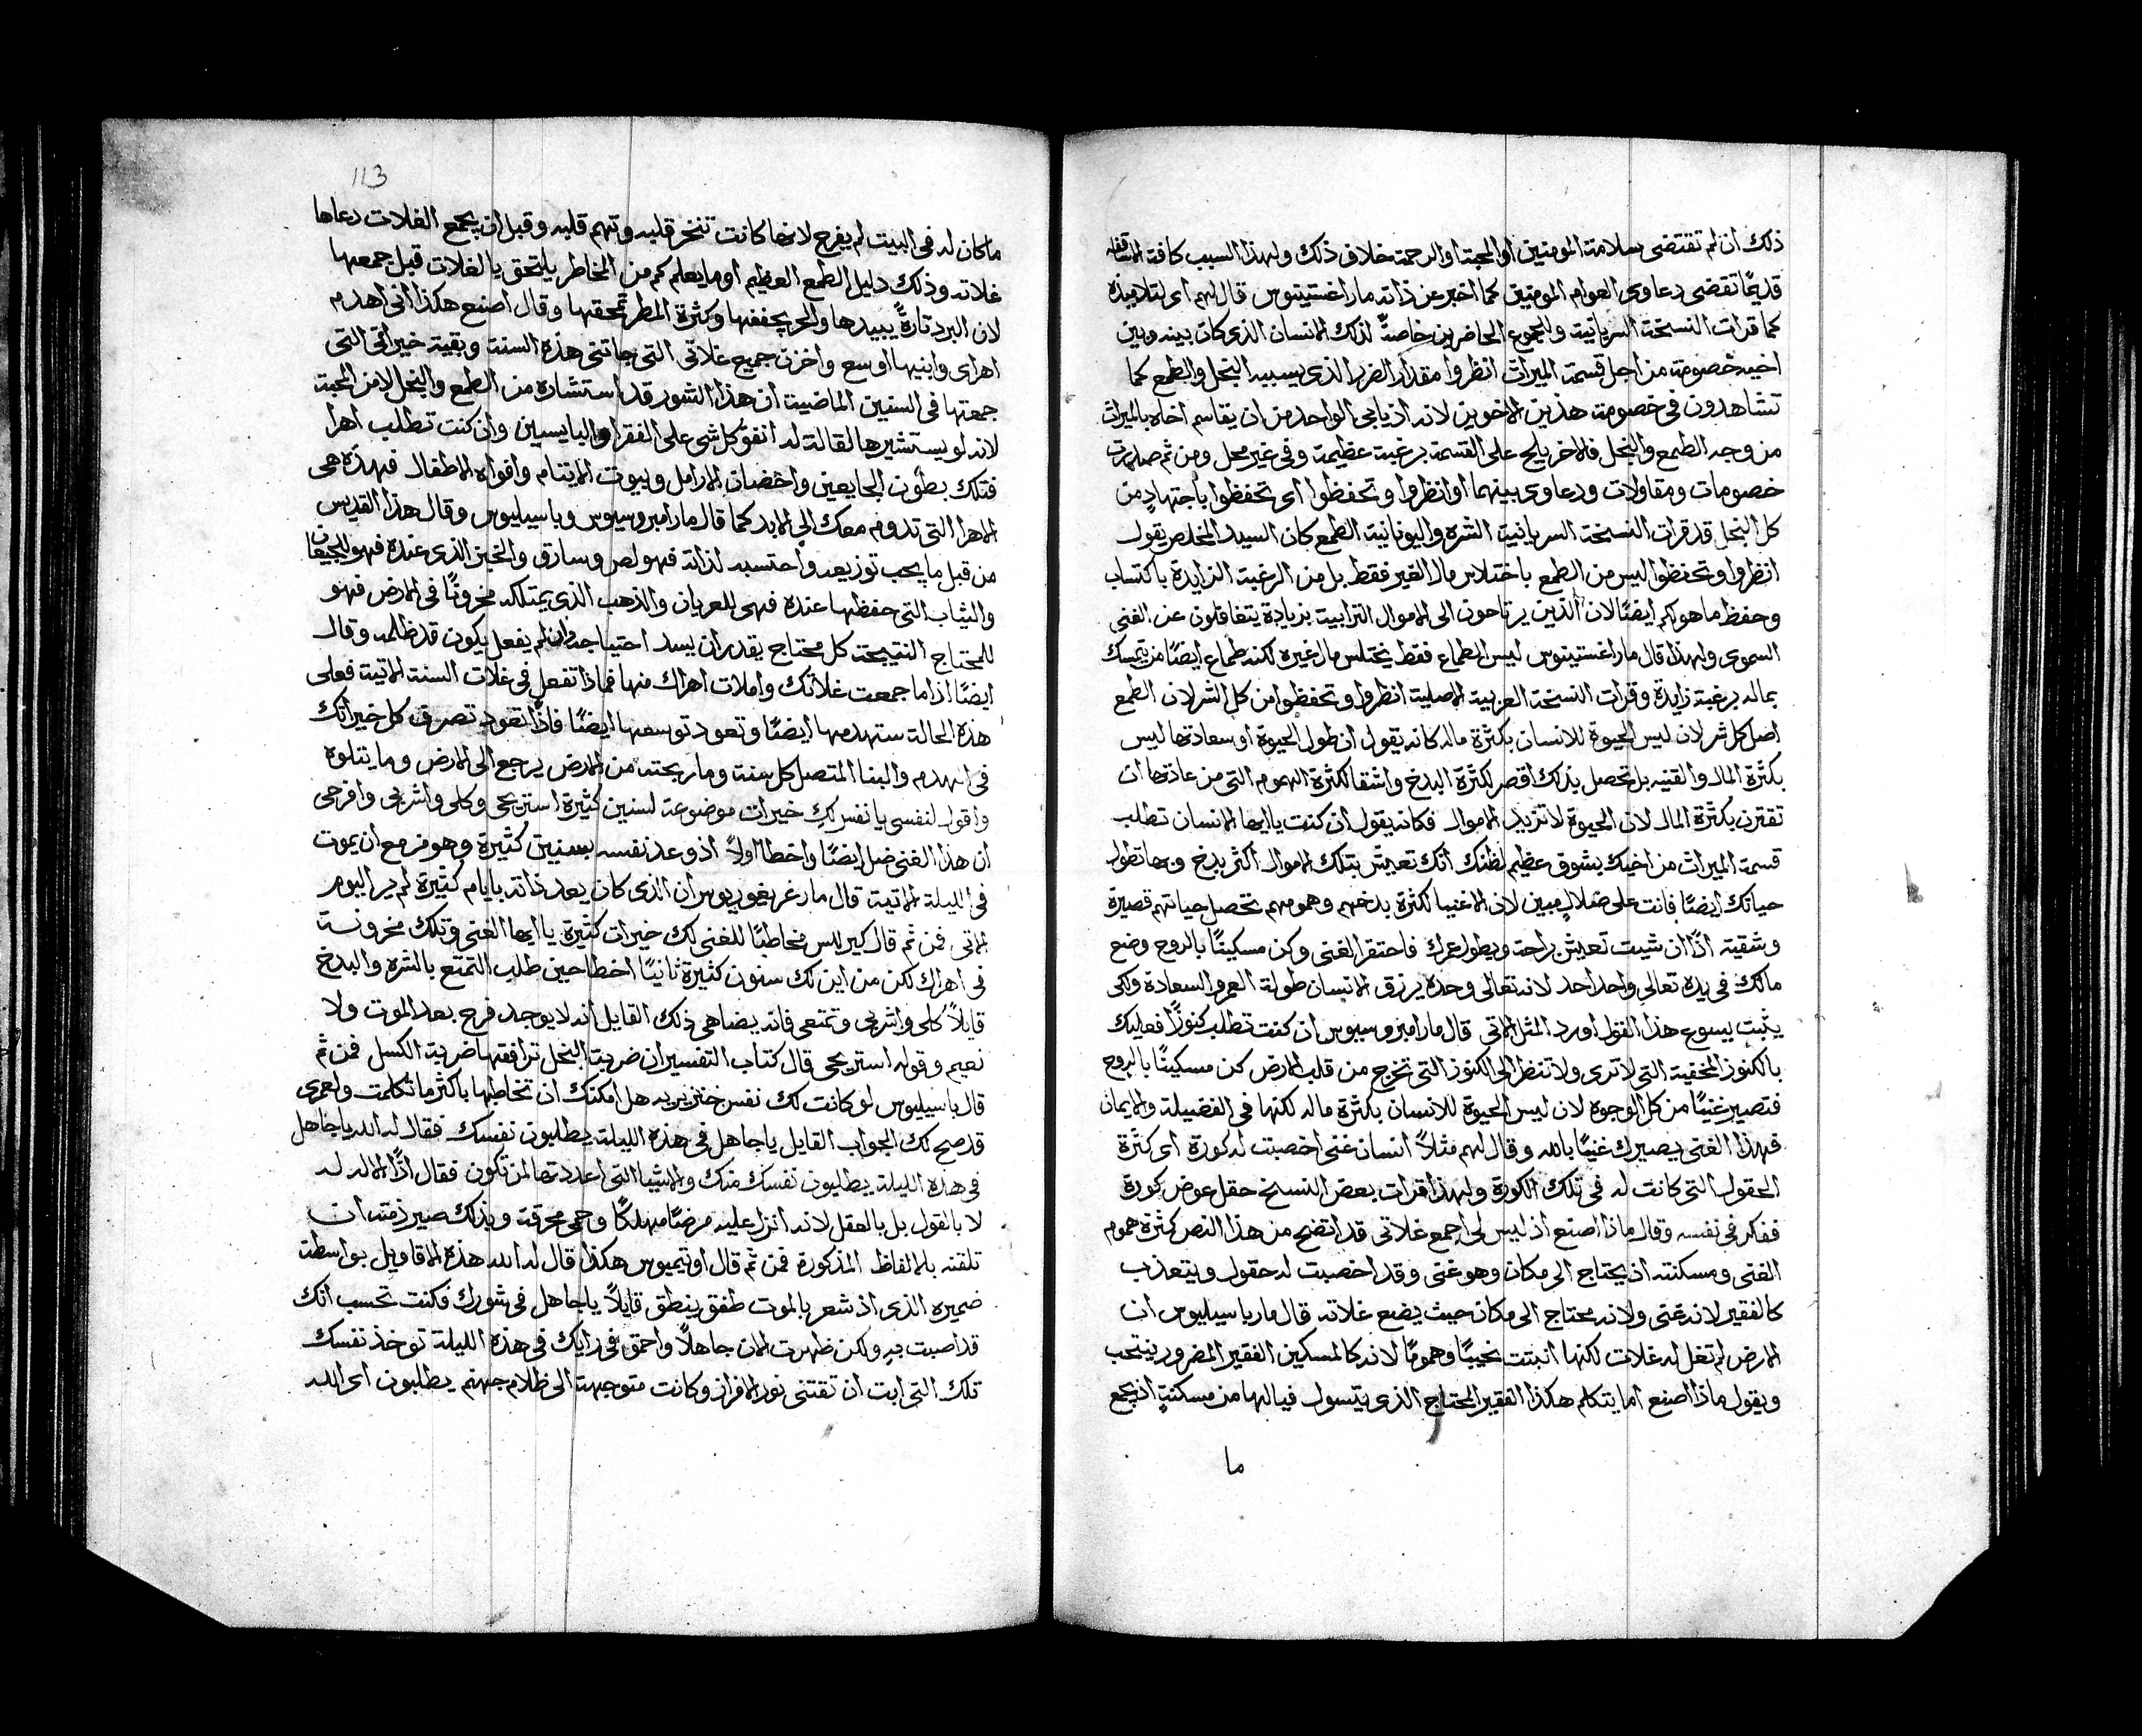 ذلك ان لم تقتضى سلامة المومنين او المحبة او الرحمة خلاف ذلك ولهذا السبب كافة الاساقفه
قديمًا تقضى دعاوى العوام المومنين كما اخبر عن ذاته مار اغستينوس قال لهم اى لتلاميذه
كما قرات النسخة السريانية وللجموع الحاضرين خاصةً لذلك الانسان الذى كان بينه وبين
اخيه خصومة من اجل قسمة الميراث انظروا مقدار الضرر الذى يسببه البخل والطمع كما
تشاهدون فى خصومة هذين الاخوين لانه اذ يابى الواحد من ان يقاسم اخاه بالميراث
من وجه الطمع والبخل فالاخر يلح على القسمة برغبة عظيمة وفى غير محل ومن ثم صدرت
خصومات ومقاولات ودعاوى بينهما او انظروا وتحفظوا اى تحفظوا باجتهادٍ من
كل البخل قد قرات النسخة السريانية الشره واليونانية الطمع كان السيد المخلص يقول
انظروا وتحفظوا ليس من الطمع باختلاس مال الغير فقط بل من الرغبة الزايدة باكتساب
وحفظ ما هو لكم ايضًا لان الذين يرتاحون الى الاموال الترابية بزيادة يتغافلون عن الغنى
السموى ولهذا قال مار اغستينوس ليس الطماع فقط يختلس مال غيره لكنه طماع ايضًا من يتمسك
بماله برغبة زايدة وقرات النسخة العربية الاصلية انظروا وتحفظوا من كل الشر لان الطمع
اصل كل شر لان ليس الحيوة للانسان بكثرة ماله كانه يقول ان طول الحيوة او سعادتها ليس
بكثرة المال والقنيه بل تحصل بذلك اقصر لكثرة البدخ واشقا لكثرة الهموم التى من عادتها ان
تقترن بكثرة المال لان الحيوة لا تزيد الاموال فكانه يقول ان كنت ياايها الانسان تطلب
قسمة الميراث من اخيك بشوق عظيم لظنك انك تعيش بتلك الاموال اكثر بدخ وبها تطول
حياتك ايضًا فانت على ضلال مبين لان الاغنيا لكثرة بدخهم وهمومهم تحصل حياتهم قصيرة
وشقيه اذًا ان شيت تعيش براحة ويطول عمرك فاحتقر الغنى وكن مسكينًا بالروح وضع
مالك فى يده تعالى واحد احد لانه تعالى وحده يرزق الانسان طولة العمر والسعادة ولكى
يثبت يسوع هذا القول اورد المثل الاتى قال مار امبروسيوس ان كنت تطلب كنوزًا فعليك
بالكنوز المخفية التى لا ترى ولا تنظر الى الكنوز التى تخرج من قلب الارض كن مسكينًا بالروح
فتصير غنيًا من كل الوجوه لان ليس الحيوة للانسان بكثرة ماله لكنها فى الفضيلة والايمان
فهذا الغنى يصيرك غنيًا بالله وقال لهم مثلاً انسان غنى اخصبت له كورة اى كثرة
الحقول التى كانت له فى تلك الكورة ولهذا قرات بعض النسخ حقل عوض كورة
ففكر فى نفسه وقال ماذا اصنع اذ ليس لى اجمع غلاتى قد اتضح من هذا النص كثرة هموم
الغنى ومسكنته اذ يحتاج الى مكان وهو غنى وقد اخصبت له حقول ويتعذب
كالفقير لانه غنى ولانه محتاج الى مكان حيث يضع غلاته قال مار باسيليوس ان
الارض لم تغل له غلات لكنها انبتت نحيبًا وهمومًا لانه كالمسكين الفقير المضرور ينتحب
ويقول ماذا اصنع اما يتكلم هكذا الفقير المحتاج الذى يتسول فيالها من مسكنةٍ اذ يجمع
ما
113
ما كان له فى البيت لم يفرح لانها كانت تنخر قلبه وتهم قلبه وقبل ان يجمع الغلات دعاها
غلاته وذلك دليل الطمع العظيم او ما يعلم كم من المخاطر يلتحق بالغلات قبل جمعها
لان البرد تارةً يبيدها والحر يجففها وكثرة المطر تمحقها وقال اصنع هكذا انى اهدم
اهراى وابنيها اوسع واخزن جميع غلاتى التى جاتنى هذه السنة وبقية خيراتى التى
جمعتها فى السنين الماضية ان هذا الشور قد استشاره من الطمع والبخل لا من المحبة
لانه لو يستشيرها لقالة له انفق كل شى على الفقرا والبايسين وان كنت تطلب اهرا
فتلك بطون الجايعين واحضان الارامل وبيوت الايتام وافواه الاطفال فهذه هى
الاهرا التى تدوم معك الى الابد كما قال مار امبروسيوس وباسيليوس وقال هذا القديس
من قبل ما يجب توزيعه واحتسبه لذاته فهو لص وسارق والخبز الذى عنده فهو للجيعان
والثياب التى حفظها عنده فهى للعريان والذهب الذى يمتلكه مخزونًا فى الارض فهو
للمحتاج النتيجة كل محتاج يقدر ان يسد احتياجه وان لم يفعل يكون قد ظلمه وقال
ايضًا اذا ما جمعت غلاتك واملات اهراك منها فماذا تفعل فى غلات السنة الاتية فعلى
هذه الحالة ستهدمها ايضًا وتعود توسعها ايضًا فاذًا تعود تصرف كل خيراتك
فى الهدم والبنا المتصل كل سنة وما ربحته من الارض يرجع الى الارض وما يتلوه
واقول لنفسى يا نفس لكِ خيرات موضوعة لسنين كثيرة استريحى وكلى واشربى وافرحى
ان هذا الغنى ضل ايضًا واخطا اولاً اذ وعد نفسه بسنيين كثيرة وهو مزمع ان يموت
فى الليلة الاتية قال مار غريغوريوس ان الذى كان يعد ذاته بايام كثيرة لم ير اليوم
الاتى فمن ثم قال كيرللس مخاطبًا للغنى لك خيرات كثيرة ياايها الغنى وتلك مخزونة
فى اهراك لكن من اين لك سنون كثيرة ثانيًا اخطا حين طلب التمتع بالشره والبدخ
قايلاً كلى واشربى وتمتعى فانه يضاهى ذلك القايل انه لا يوجد فرح بعد الموت ولا
نعيم وقوله استريحى قال كتاب التفسير ان ضربة البخل ترافقها ضربة الكسل فمن ثم
قال باسيليوس لو كانت لك نفس خنزيريه هل امكنك ان تخاطبها باكثر ما تكلمت ولعمرى
قد صح لك الجواب القايل يا جاهل فى هذه الليلة يطلبون نفسك فقال له الله يا جاهل
فى هذه الليلة يطلبون نفسك منك والاشيا التى اعددتها لمن تكون فقال اذًا الاله له
لا بالقول بل بالعقل لانه انزل عليه مرضًا مهلكًا وحمى محرقة وبذلك صير ذمته ان
تلقنه بالالفاظ المذكورة فمن ثم قال اوتيميوس هكذا قال له الله هذه الاقاويل بواسطة
ضميره الذى اذ شعر بالموت طفق ينطق قايلاً يا جاهل فى شورك فكنت تحسب انك
قد اصبت فيه ولكن ظهرت الان جاهلاً واحمق فى رايك فى هذه الليلة توخذ نفسك
تلك التى ابت ان تقتنى نور الافراز وكانت متوجهة الى ظلام جهنم يطلبون اى الله